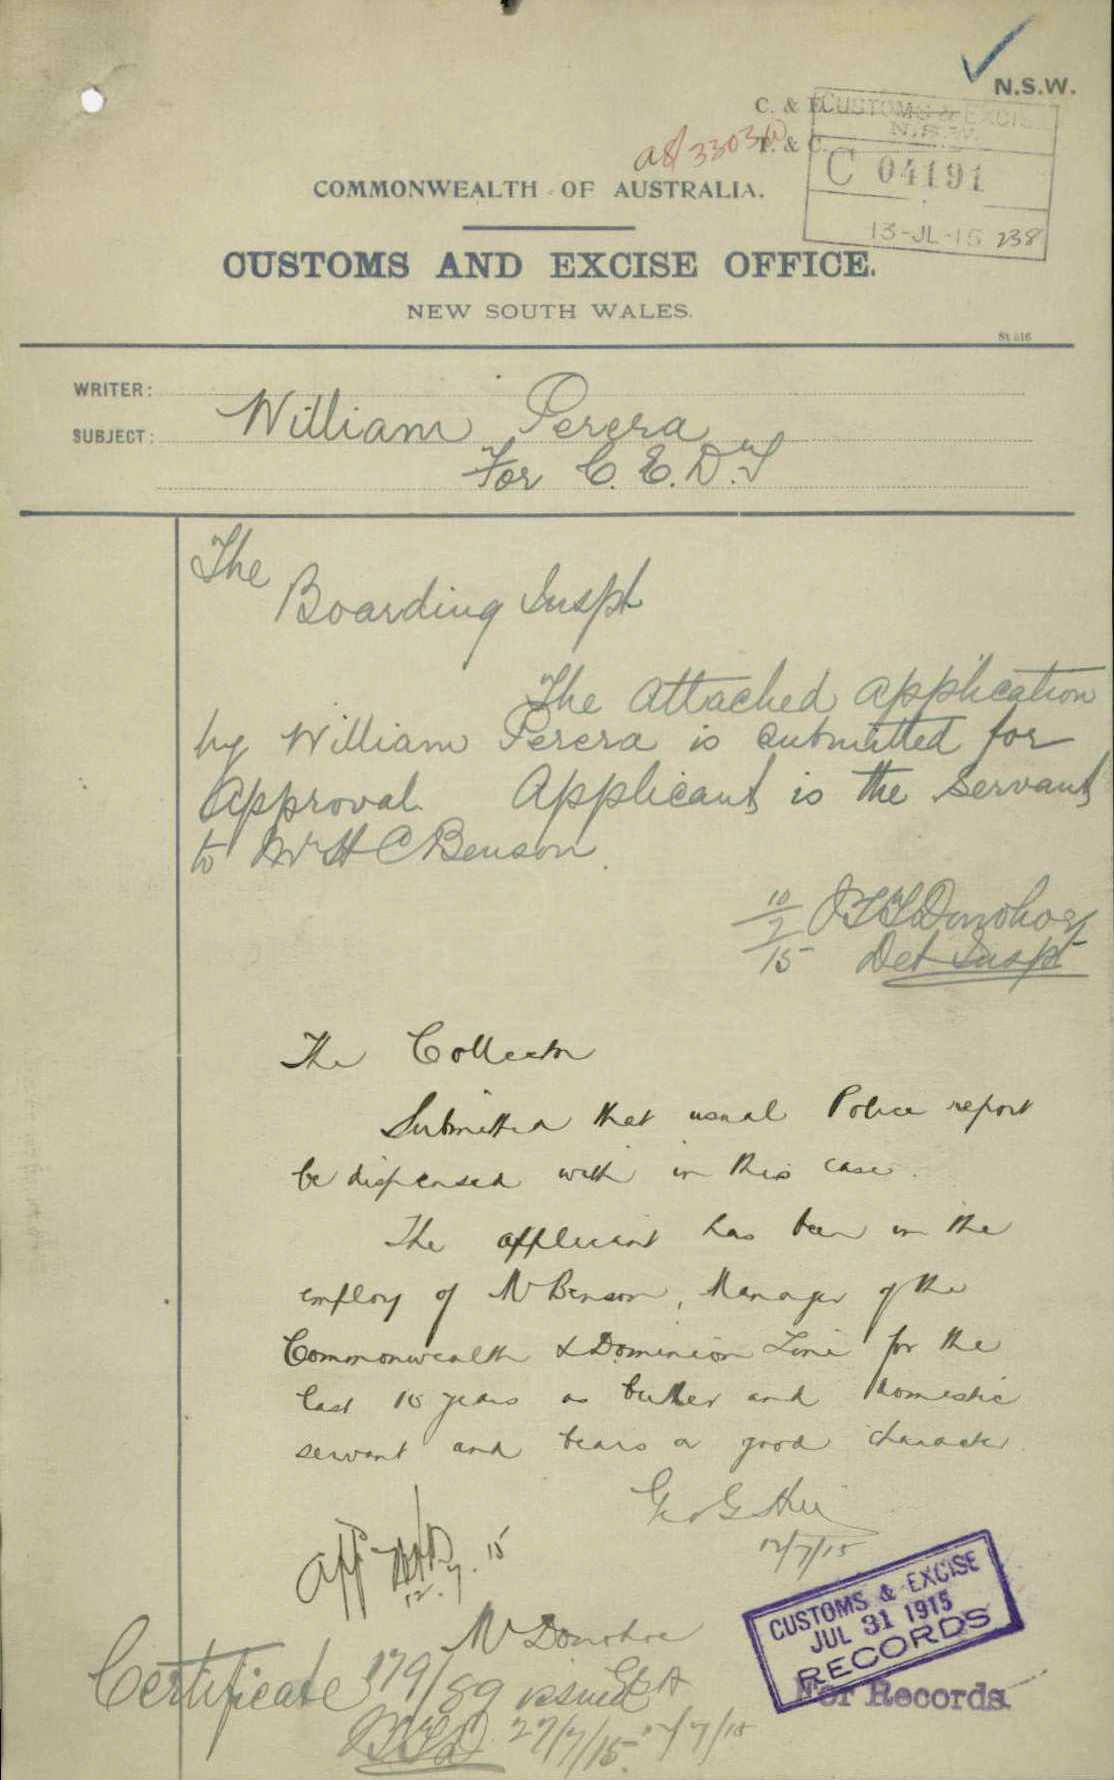 N.S.W.
C. & E.
T. & C.
CUSTOMS & EXCISE
N.S.W.
C 04191
13-JL-15 238
COMMONWEALTH OF AUSTRALIA.
CUSTOMS AND EXCISE OFFICE.
NEW SOUTH WALES.
WRITER:
SUBJECT:
William Perera
For C. E. D. T
The
Boarding Inspt
The attached application
by William Perera is submitted for
Approval. Applicant is the servant
to Mr H C Benson
10/7/15 Donohoe
Det Inspt
The Collector
Submitted that usual Police report
be dispensed with in this case.
The applicant has been in the
employ of Mr Benson, Manager of the
Commonwealth & Dominion Line for the
last 10 years as butler and domestic
servant and bears a good character
Geo G
12/7/15
App
12.7.15
Mr Donohoe
Certificate 179/89 issued
27/7/15
CUSTOMS & EXCISE
JUL 31 1915
RECORDS
For Records